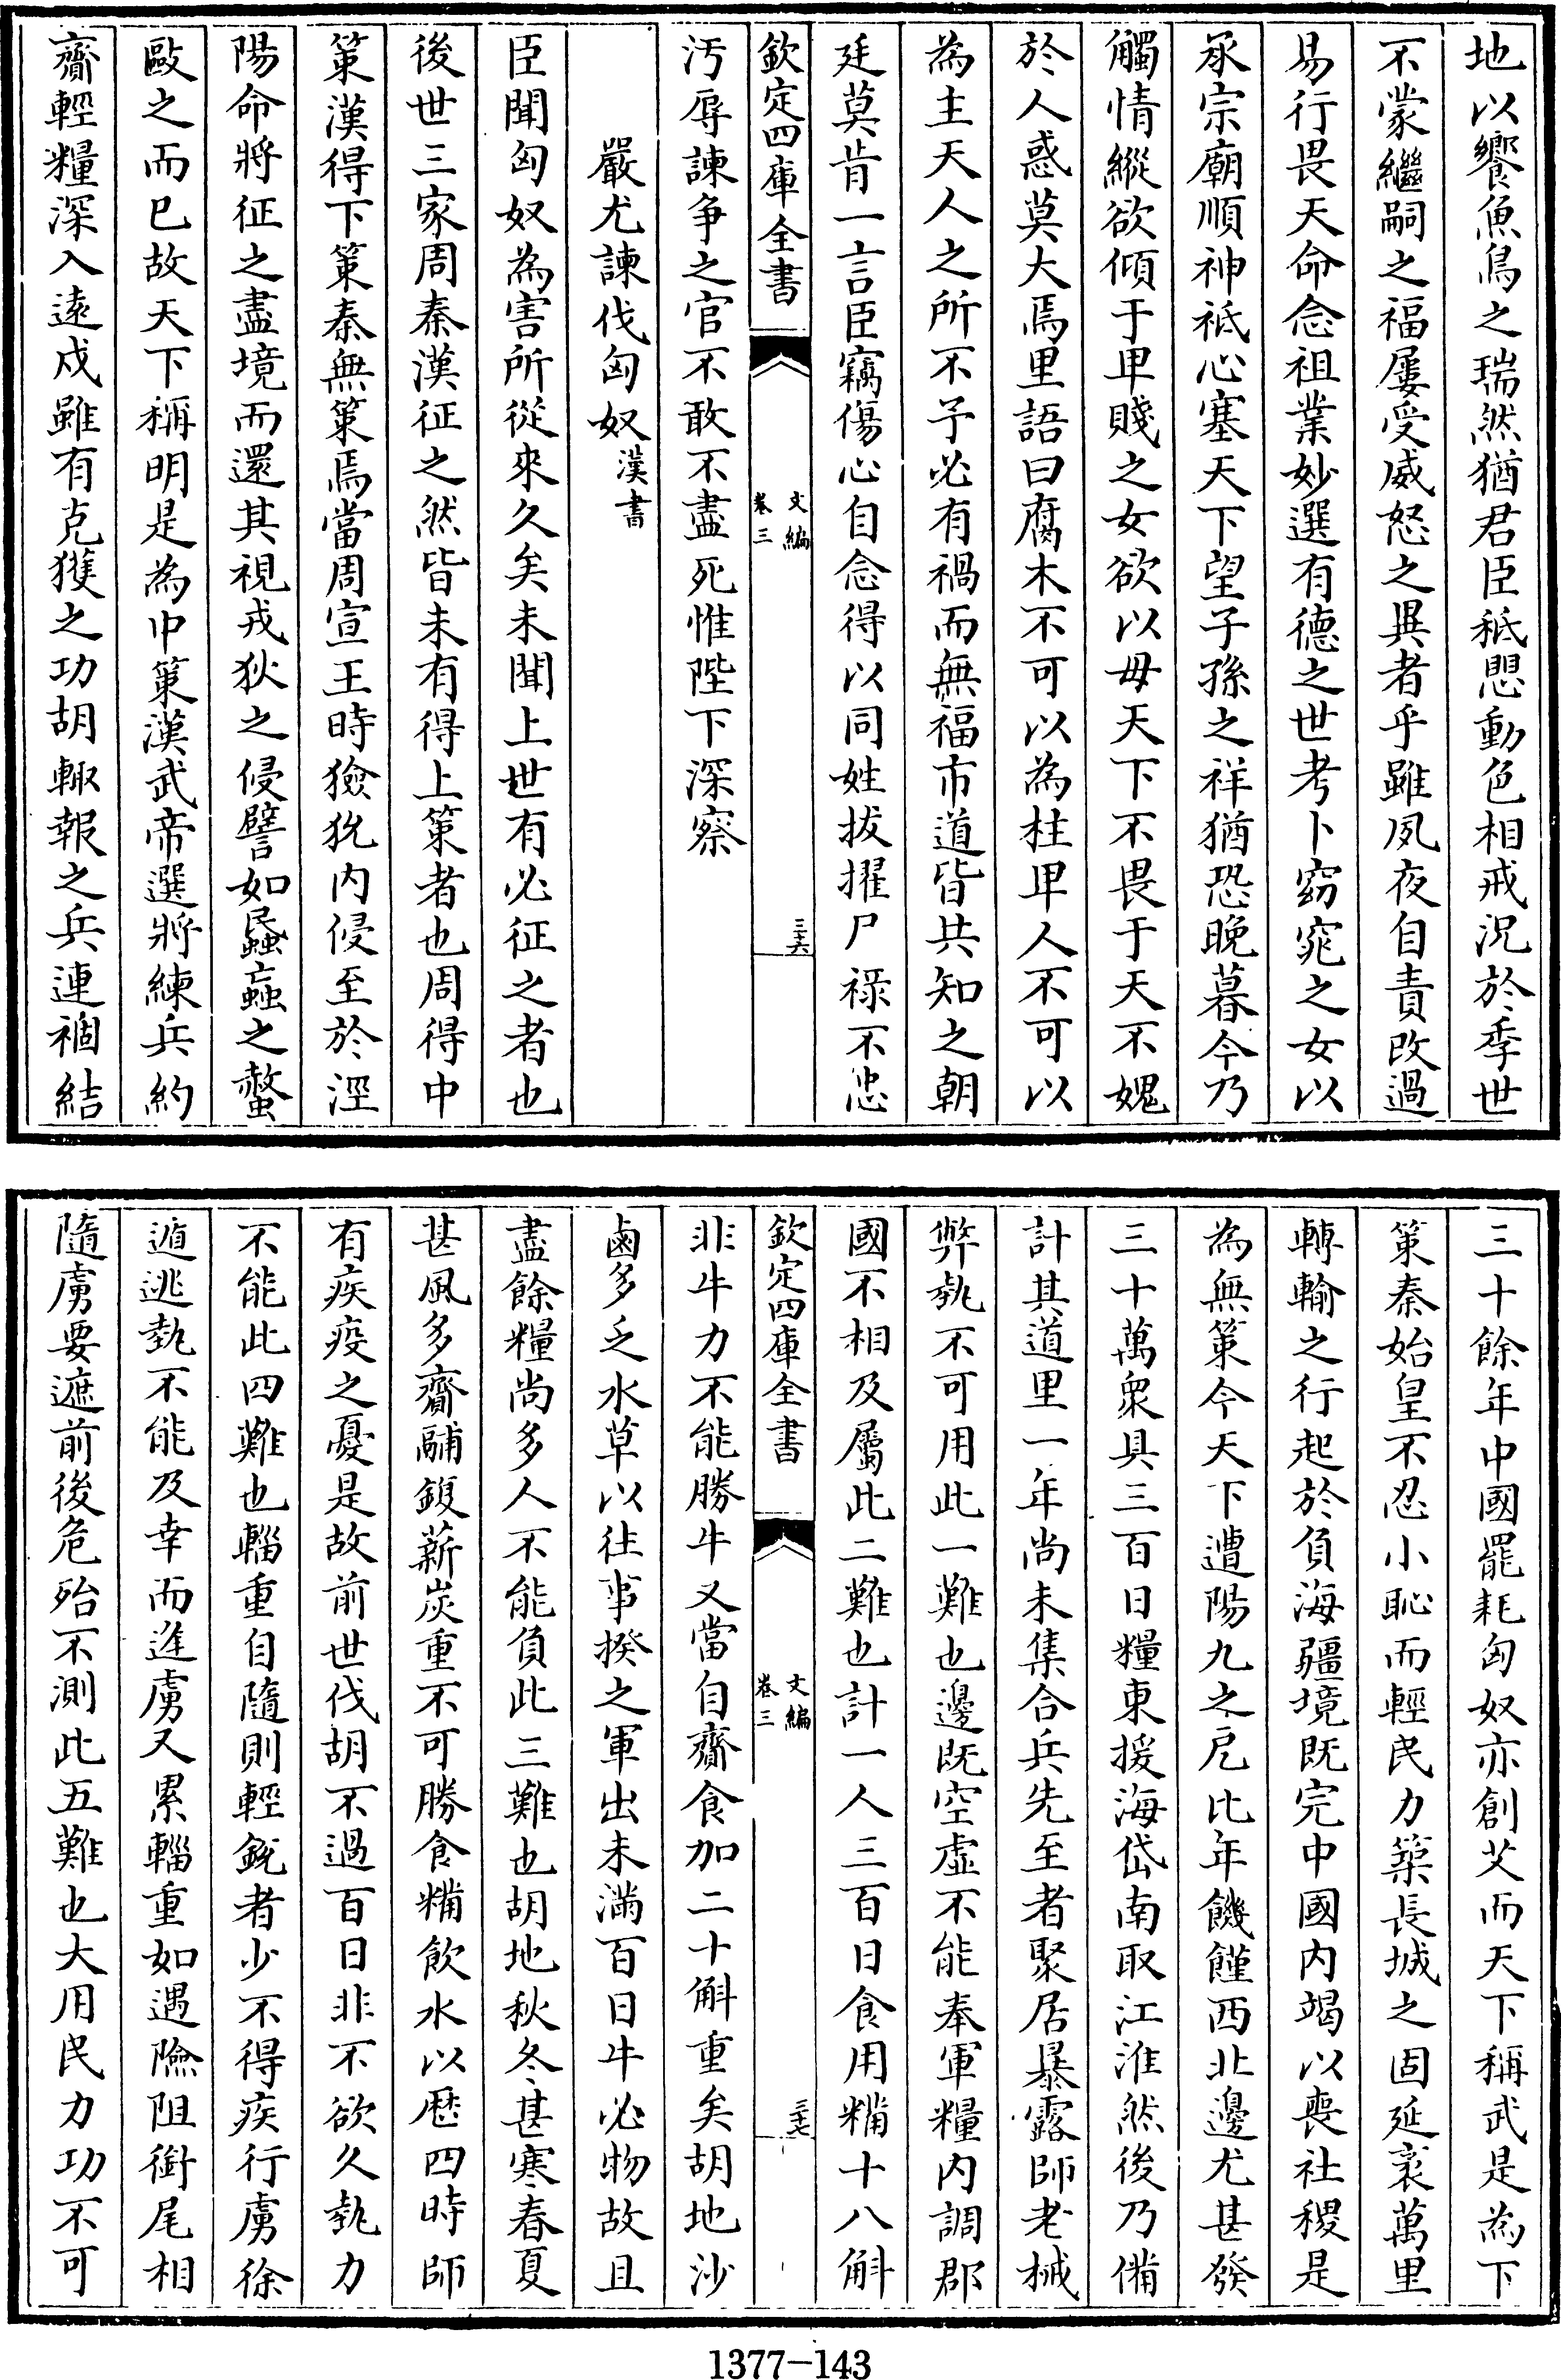 地以饗魚鳥之瑞然猶君臣祗愳動色相戒況於季世
不蒙繼嗣之福屢受威怒之異者乎雖夙夜自責改過
易行畏天命念祖業妙選有德之世考卜窈窕之女以
承宗廟順神祗心塞天下望子孫之祥猶恐晚暮今乃
觸情縱欲傾于卑賤之女欲以母天下不畏于天不媿
於人惑莫大焉里語曰腐木不可以為柱卑人不可以
為主天人之所不予必有禍而無福市道皆共知之朝
廷莫肯一言臣竊傷心自念得以同姓拔擢尸祿不忠
欽定四庫全書
文編
卷三
三十六
汚辱諫争之官不敢不盡死惟陛下深察
嚴尤諫伐匈奴漢書
臣聞匈奴為害所從來久矣未聞上世有必征之者也
後世三家周秦漢征之然皆未有得上策者也周得中
策漢得下策秦無策焉當周宣王時獫狁内侵至於涇
陽命將征之盡境而還其視戎狄之侵譬如蟁蝱之螫
敺之而已故天下稱明是為中策漢武帝選將練兵約
齎輕糧深入遠戍雖有克獲之功胡輒報之兵連禍結
三十餘年中國罷耗匈奴亦創艾而天下稱武是為下
策秦始皇不忍小恥而輕民力築長城之固延袤萬里
轉輸之行起於負海疆境既完中國内竭以喪社稷是
為無策今天下遭陽九之戹比年饑饉西北邊尤甚發
三十萬衆具三百日糧東援海岱南取江淮然後乃備
計其道里一年尚未集合兵先至者聚居暴露師老械
弊埶不可用此一難也邊既空虛不能奉軍糧内調郡
國不相及屬此二難也計一人三百日食用糒十八斛
欽定四庫全書
文編
卷三
三十七
非牛力不能勝牛又當自齎食加二十斛重矣胡地沙
鹵多乏水草以往事揆之軍出未滿百日牛必物故且
盡餘糧尚多人不能負此三難也胡地秋冬甚寒春夏
甚風多齎鬴鍑薪炭重不可勝食糒飲水以歴四時師
有疾疫之憂是故前世伐胡不過百日非不欲久埶力
不能此四難也輜重自隨則輕鋭者少不得疾行虜徐
遁逃埶不能及幸而逢虜又累輜重如遇險阻銜尾相
隨虜要遮前後危殆不測此五難也大用民力功不可
1377-143